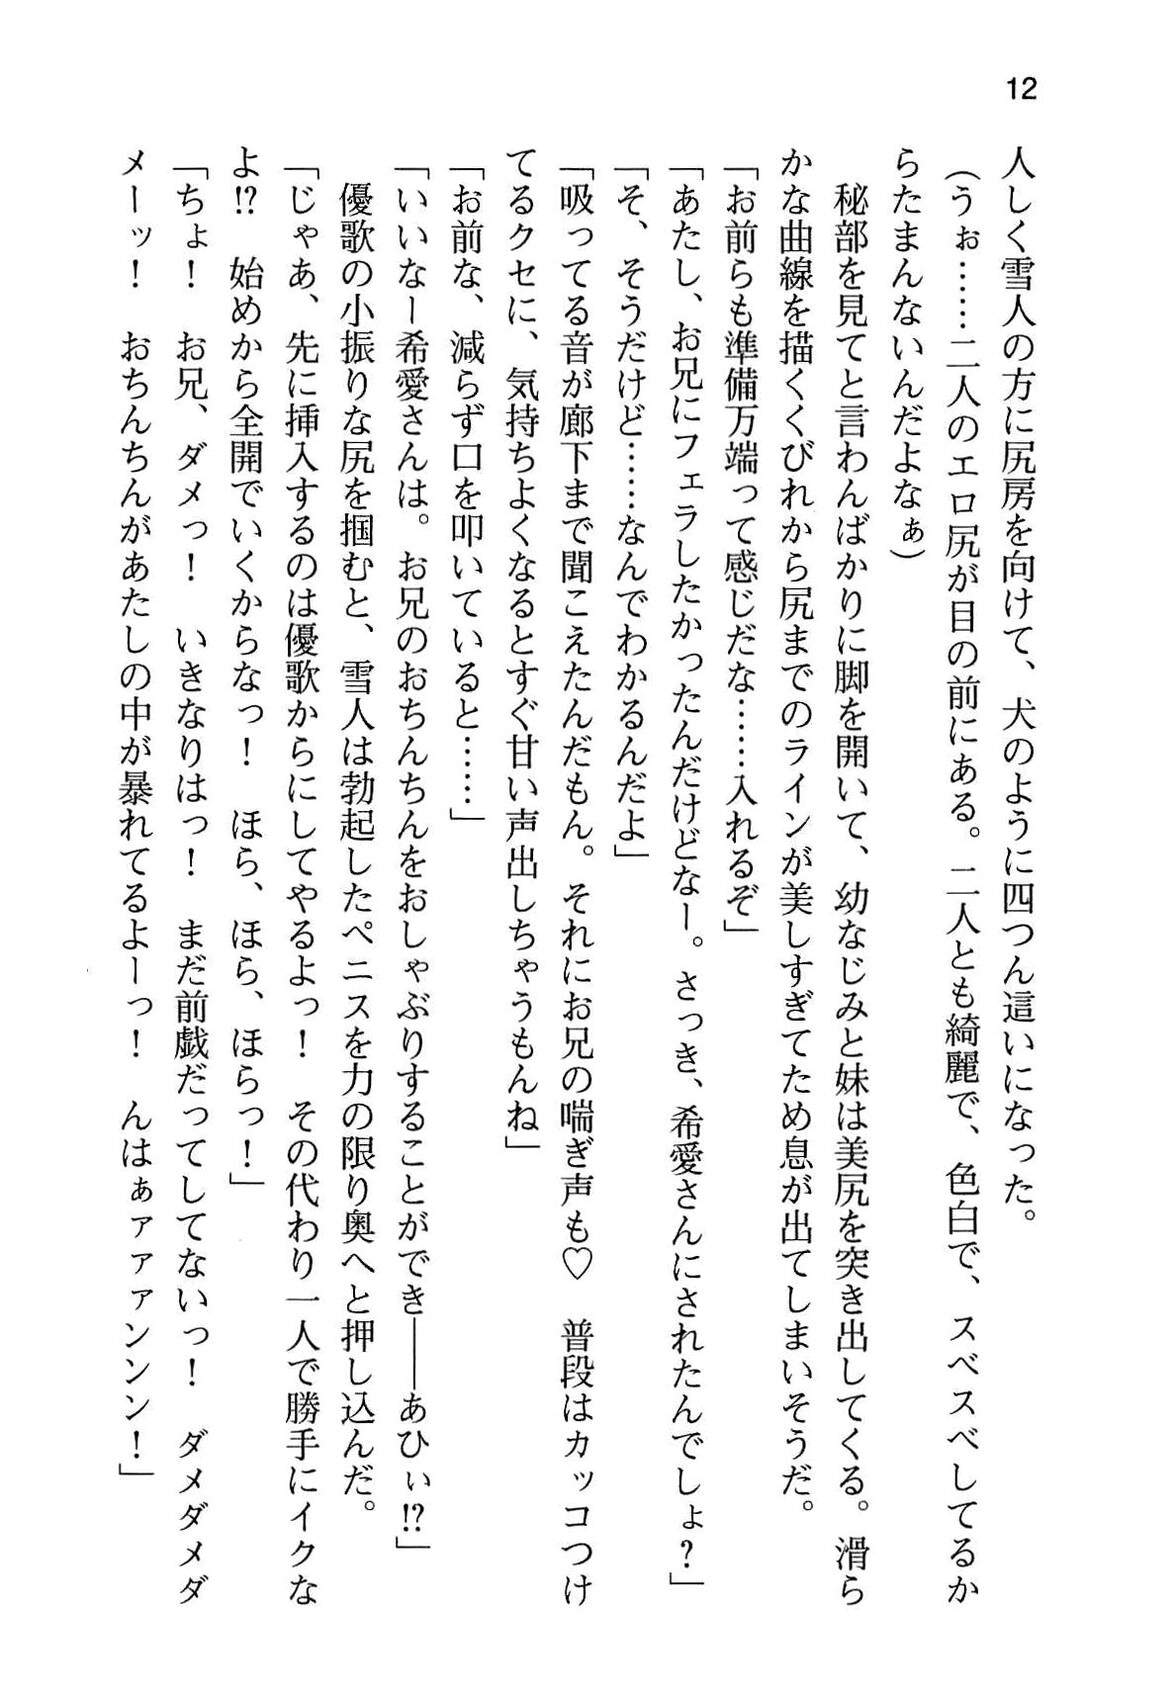 12
人しく雪人の方に尻房を向けて、犬のように四つん這いになった。
(うぉ……二人のエロ尻が目の前にある。二人とも綺麗で、色白で、スベスベしてるか
らたまんないんだよなぁ)
秘部を見てと言わんばかりに脚を開いて、幼なじみと妹は美尻を突き出してくる。滑ら
かな曲線を描くくびれから尻までのラインが美しすぎてため息が出てしまいそうだ。
「お前らも準備万端って感じだな……入れるぞ」
「あたし、お兄にフェラしたかったんだけどなー。さっき、希愛さんにされたんでしょ?」
「そ、そうだけど……なんでわかるんだよ」
「吸ってる音が廊下まで聞こえたんだもん。それにお兄の喘ぎ声も♡　普段はカッコつけ
てるクセに、気持ちよくなるとすぐ甘い声出しちゃうもんね」
「お前な、減らず口を叩いていると……」
「いいなー希愛さんは。お兄のおちんちんをおしゃぶりすることができ――あひぃ!?」
優歌の小振りな尻を掴むと、雪人は勃起したペニスを力の限り奥へと押し込んだ。
「じゃあ、先に挿入するのは優歌からにしてやるよっ!　その代わり一人で勝手にイクな
よ!?　始めから全開でいくからなっ!　ほら、ほら、ほらっ!」
「ちょ!　お兄、ダメっ!　いきなりはっ!　まだ前戯だってしてないっ!　ダメダメダ
メーッ!　おちんちんがあたしの中が暴れてるよーっ!　んはぁァァァンンン!」